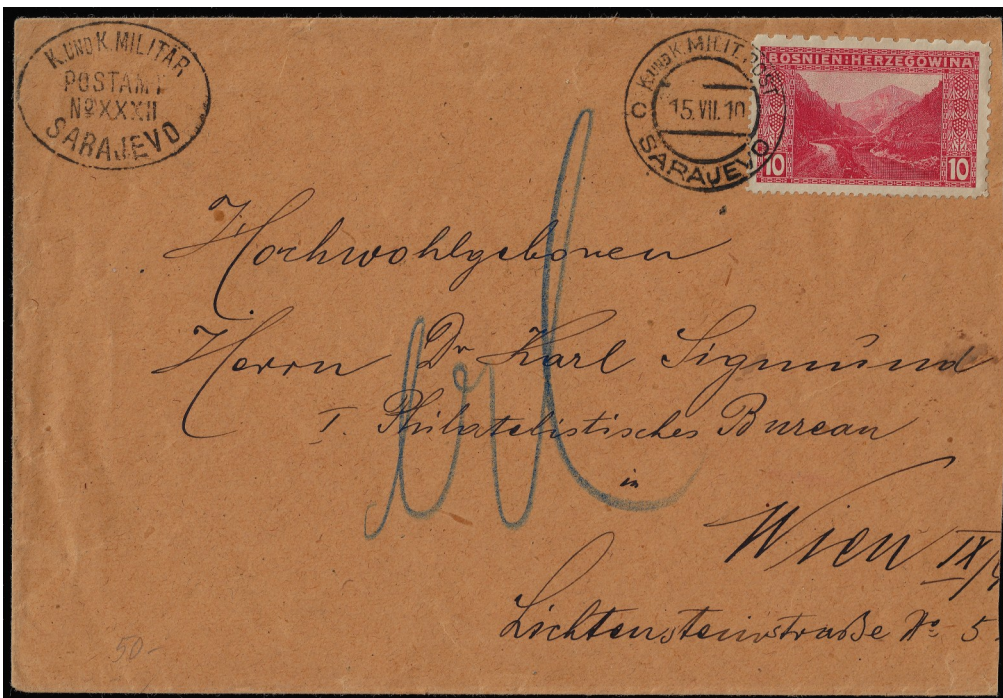 K. UND K. MILITÄR
POSTAMT
No XXXII
SARAJEVO
K. UND K. MILIT. POST
C
15.VII.10
SARAJEVO
BOSNIEN:HERZEGOWINA
10 10
Hochwohlgeboren
Herrn Dr Karl Sigmund
I. Philatelistisches Bureau
in
Wien IX/
Lichtensteinstraße No 5
50-